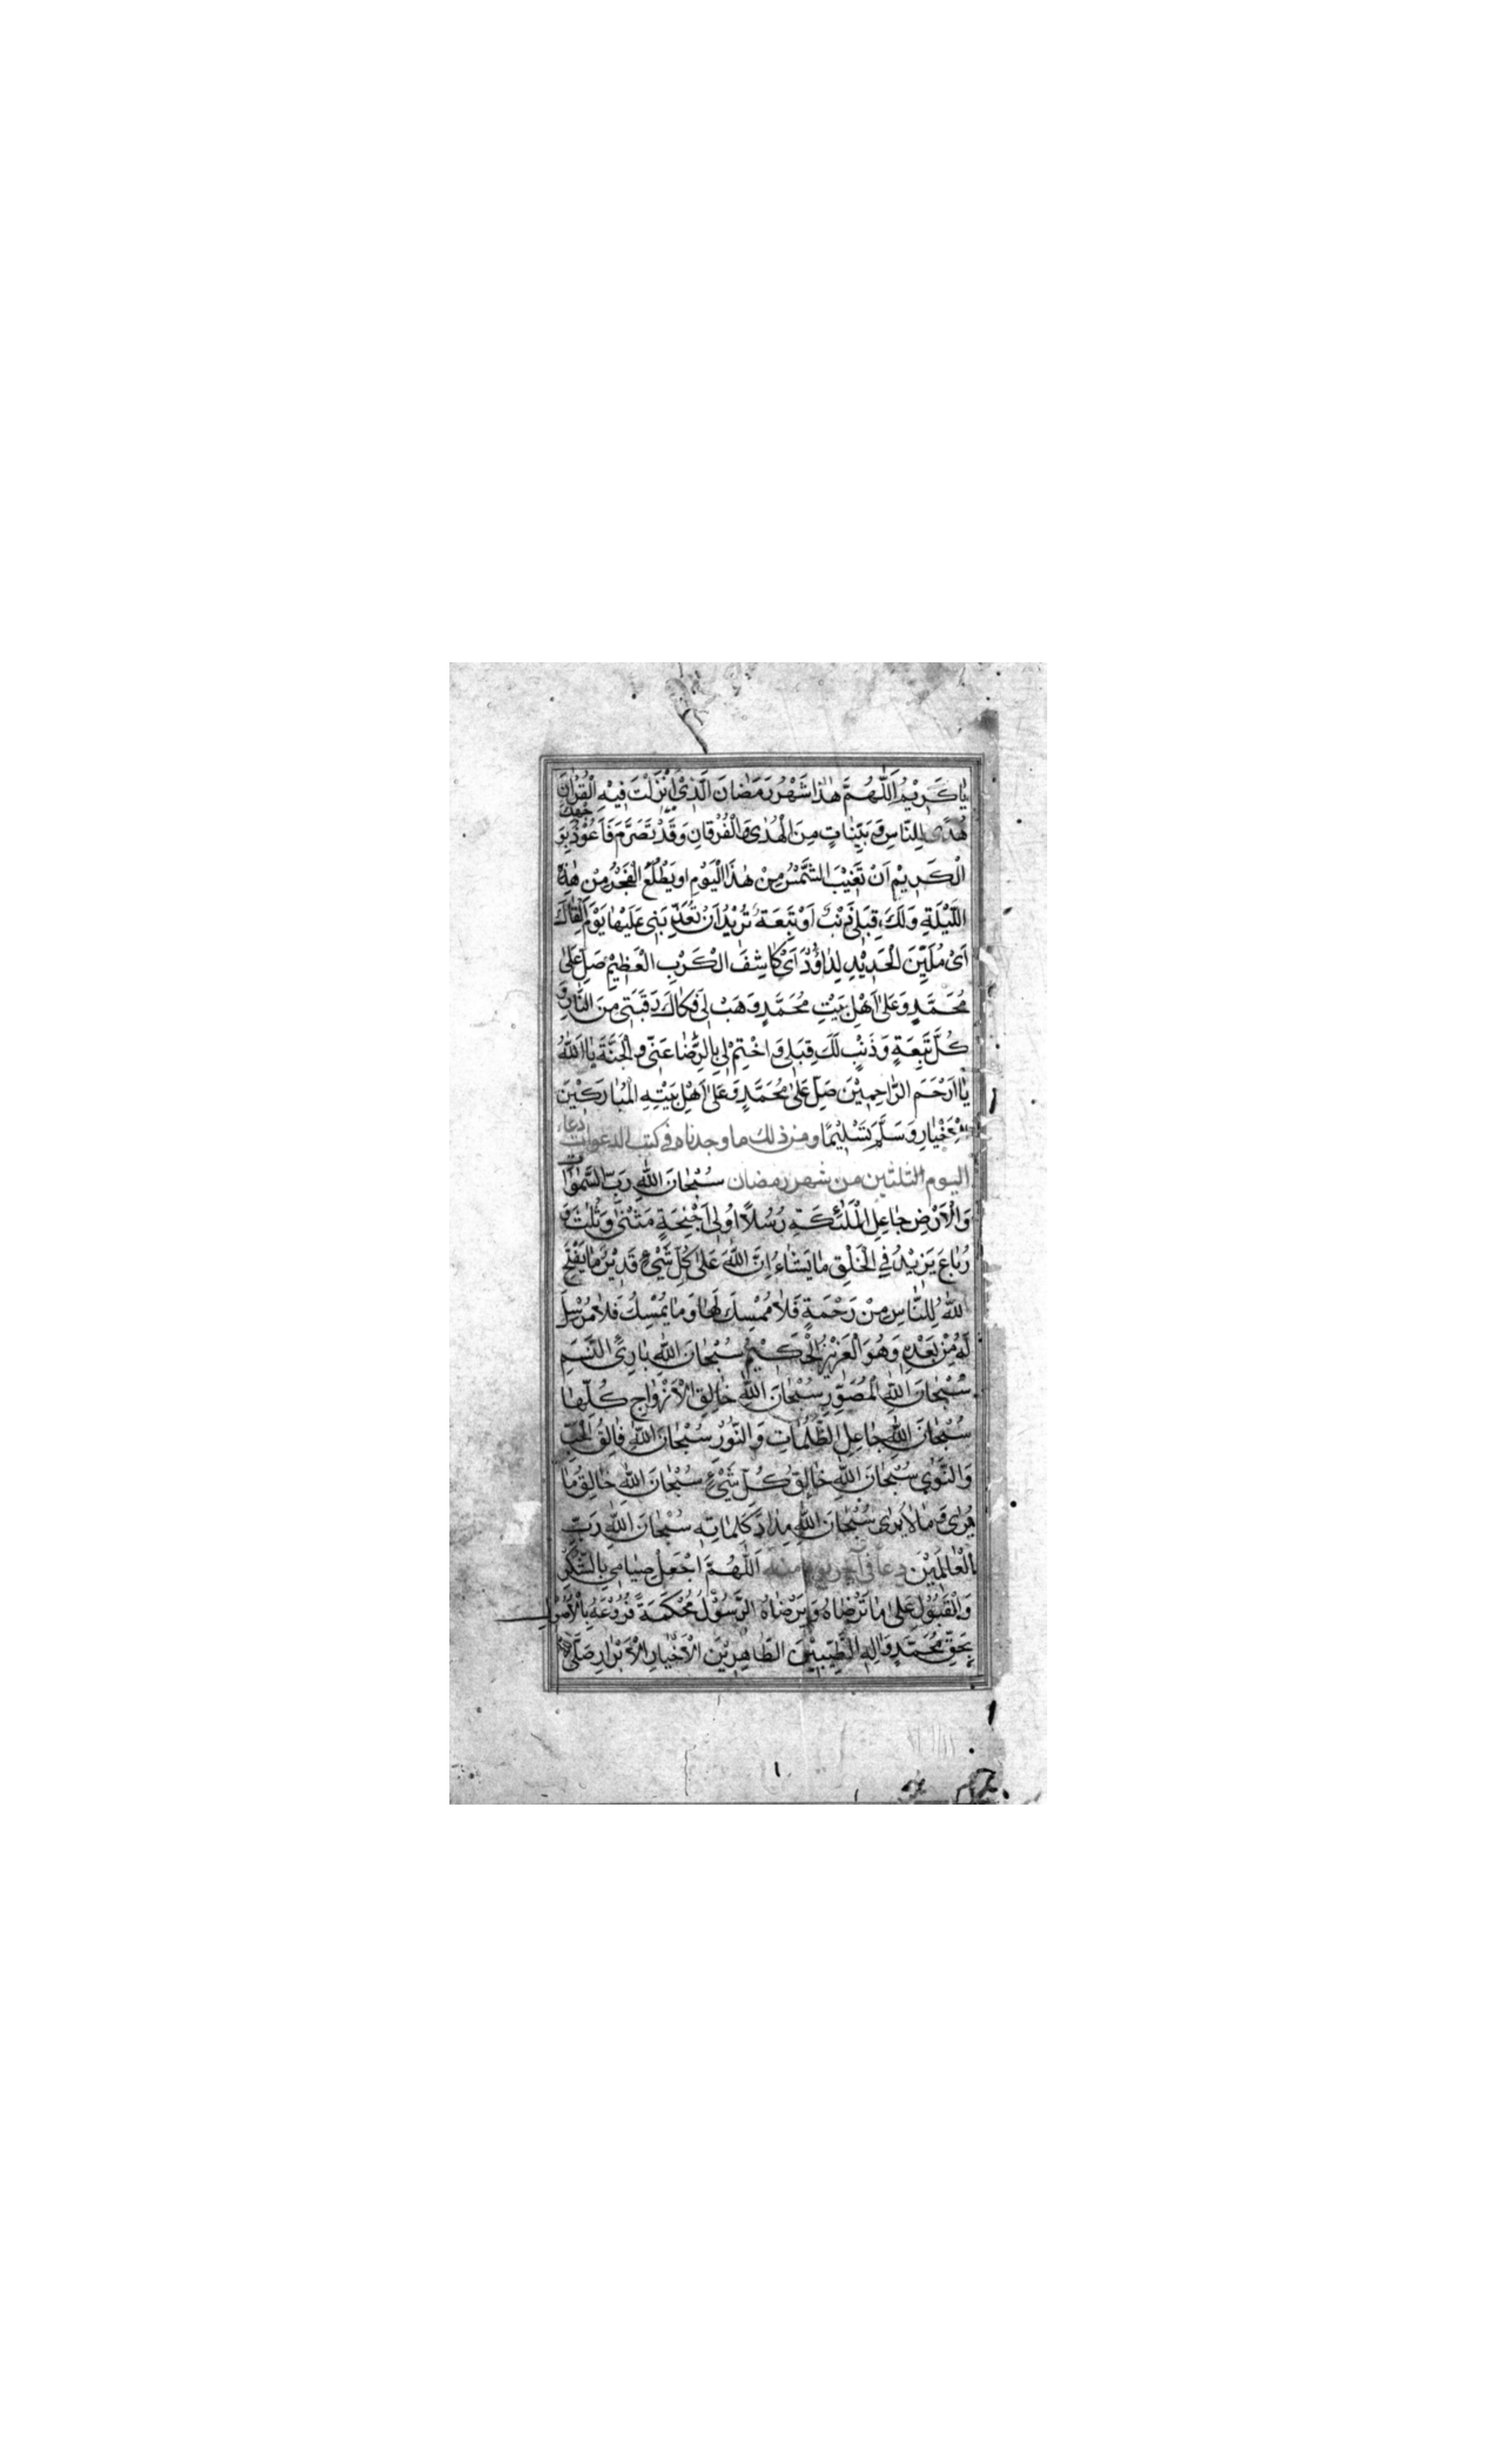 يٰا كَرِيْمُ اَللّٰهُمَّ هٰذٰا شَهْرُ رَمَضٰانَ الَّذِىْ اَنْزَلْتَ فِيْهِ الْقُرْاٰنَ
هُدًى لِلنّٰاسِ وَ بَيِّنٰاتٍ مِنَ الْهُدٰى وَالْفُرْقٰانِ وَقَدْ تَصَرَّمَ فَاَعُوْذُ بِوَجْهِكَ
الْكَرِيْمِ اَنْ تَغِيْبَ الشَّمْسُ مِنْ هٰذَا الْيَوْمِ اَوْ يَطْلُعَ الْفَجْرُ مِنْ هٰذِهِ
اللَّيْلَةِ وَلَكَ قِبَلِى ذَنْبٌ اَوْ تَبِعَةٌ تُرِيْدُ اَنْ تُعَذِّبَنِى عَلَيْهٰا يَوْمَ اَلْقٰاكَ
اَىْ مُلَيِّنَ الْحَدِيْدِ لِدٰاوُدَ اَىْ كٰاشِفَ الْكَرْبِ الْعَظِيْمِ صَلِّ عَلٰى
مُحَمَّدٍ وَعَلٰى اَهْلِ بَيْتِ مُحَمَّدٍ وَهَبْ لِى فَكٰاكَ رَقَبَتِى مِنَ النّٰارِ وَ
كُلَّ تَبِعَةٍ وَذَنْبٍ لَكَ قِبَلِى وَاخْتِمْ لِى بِالرِّضٰا عَنِّى وَالْجَنَّةَ يٰا اَللّٰهُ
يٰا اَرْحَمَ الرّٰاحِمِيْنَ صَلِّ عَلٰى مُحَمَّدٍ وَعَلٰى اَهْلِ بَيْتِهِ الْمُبٰارَكِيْنَ
الْاَخْيٰارِ وَسَلَّمَ تَسْلِيْمًا ومن ذلك ما وجدناه فى كتب الدعوات دعاء
اليوم الثلثين من شهر رمضان سُبْحٰانَ اللّٰهِ رَبِّ السَّمٰوٰاتِ
وَالْاَرْضِ جٰاعِلِ الْمَلٰئِكَةِ رُسُلًا اُولِى اَجْنِحَةٍ مَثْنٰى وَثُلٰثَ وَ
رُبٰاعَ يَزِيْدُ فِى الْخَلْقِ مٰا يَشٰاءُ اِنَّ اللّٰهَ عَلٰى كُلِّ شَىْءٍ قَدِيْرٌ مٰا يَفْتَحِ
اللّٰهُ لِلنّٰاسِ مِنْ رَحْمَةٍ فَلٰا مُمْسِكَ لَهٰا وَمٰا يُمْسِكْ فَلٰا مُرْسِلَ
لَهُ مِنْ بَعْدِهِ وَهُوَ الْعَزِيْزُ الْحَكِيْمُ سُبْحٰانَ اللّٰهِ بٰارِئِ النَّسَمِ
سُبْحٰانَ اللّٰهِ الْمُصَوِّرِ سُبْحٰانَ اللّٰهِ خٰالِقِ الْاَزْوٰاجِ كُلِّهٰا
سُبْحٰانَ اللّٰهِ جٰاعِلِ الظُّلُمٰاتِ وَالنُّوْرِ سُبْحٰانَ اللّٰهِ فٰالِقِ الْحَبِّ
وَالنَّوٰى سُبْحٰانَ اللّٰهِ خٰالِقِ كُلِّ شَىْءٍ سُبْحٰانَ اللّٰهِ خٰالِقِ مٰا
يُرٰى وَ مٰا لٰا يُرٰى سُبْحٰانَ اللّٰهِ مِدٰادَ كَلِمٰاتِهِ سُبْحٰانَ اللّٰهِ رَبِّ
الْعٰالَمِيْنَ دعاء فى آخر يوم منه اَللّٰهُمَّ اجْعَلْ صِيٰامِى بِالشُّكْرِ
وَالْقَبُوْلِ عَلٰى مٰا تَرْضٰاهُ وَيَرْضٰاهُ الرَّسُوْلُ مُحْكَمَةً فُرُوْعُهُ بِالْاُصُوْلِ
بِحَقِّ مُحَمَّدٍ وَاٰلِهِ الطَّيِّبِيْنَ الطّٰاهِرِيْنَ الْاَخْيٰارِ الْاَبْرٰارِ صَلَّى اللّٰهُ